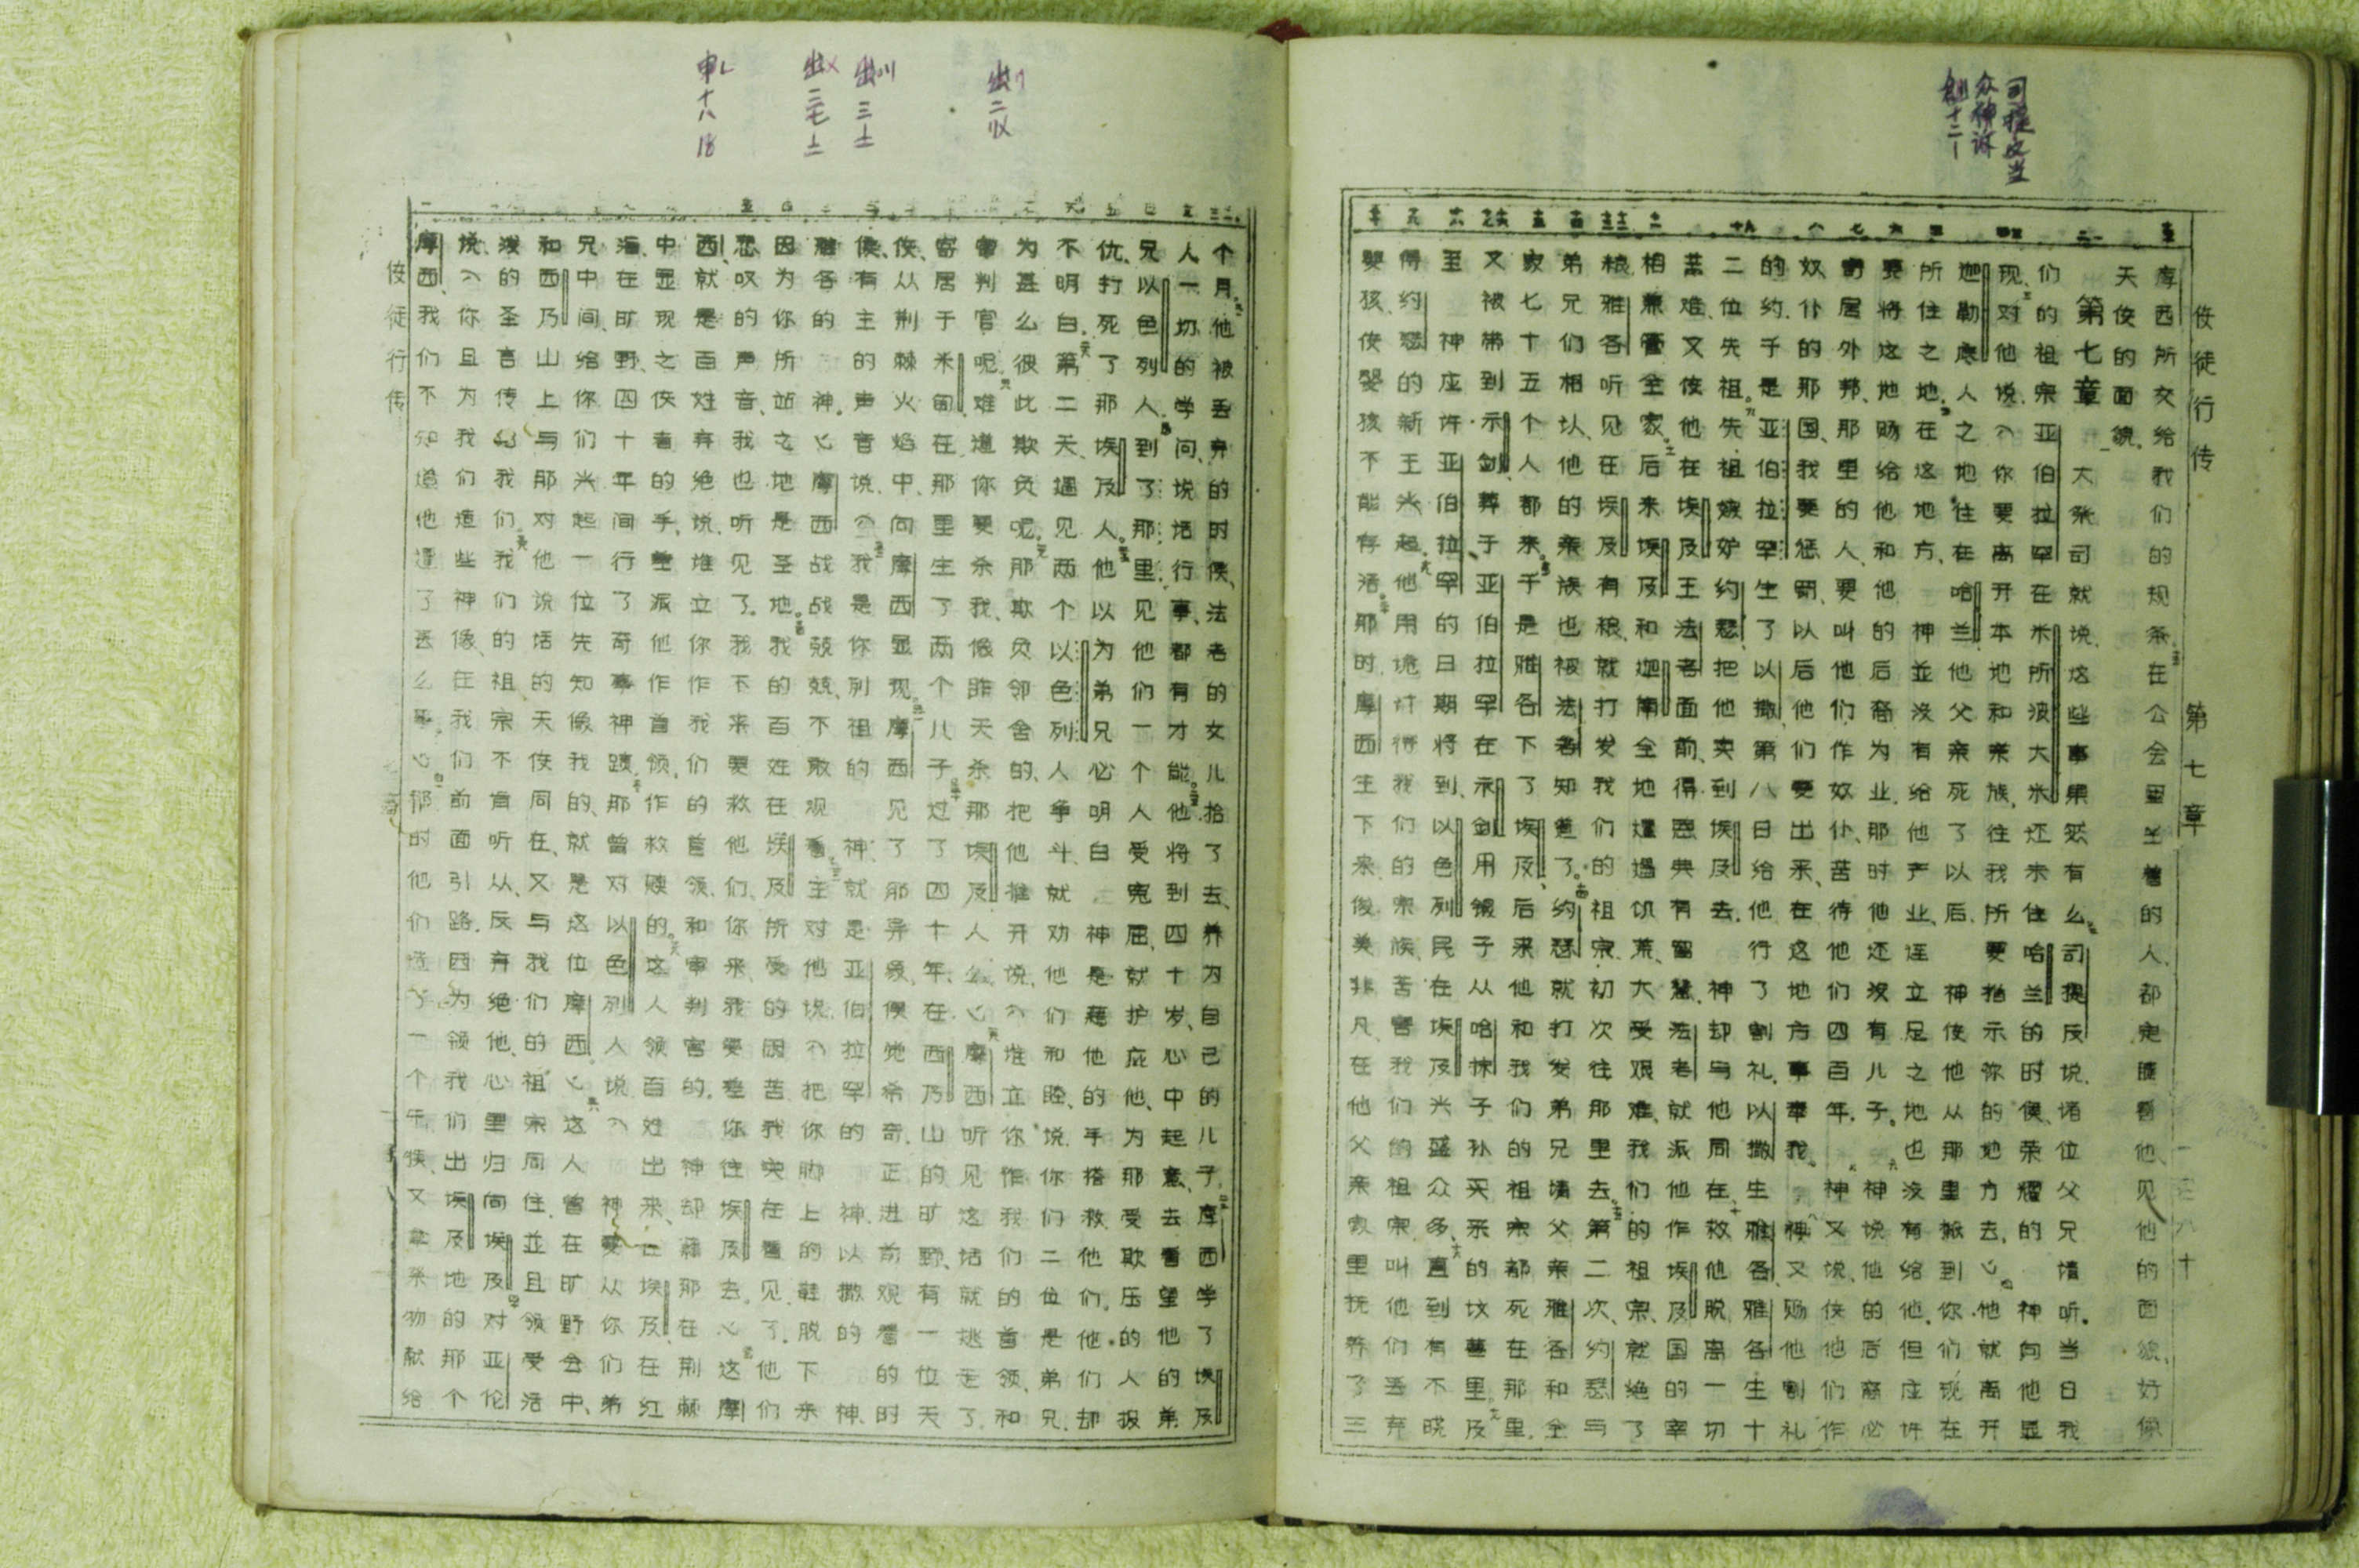 司提反当
众神诉
创十二1
使徒行传 第七章 一百八十
摩西所交给我们的规条。在公会里坐着的人、都定睛看他、见他的面貌、好像
天使的面貌。
第七章
大祭司就说、这些事果然有么。司提反说、诸位父兄请听。当日我
们的祖宗亚伯拉罕在米所波大米还未住哈兰的时候、荣耀的神向他显
现、对他说、你要离开本地和亲族、往我所要指示你的地方去。他就离开
迦勒底人之地往在哈兰、他父亲死了以后、神使他从那里搬到你们现在
所住之地。在这地方、神並没有给他产业、连立足之地也没有给他、但应许
要将这地赐给他和他的后裔为业、那时他还没有儿子。神说、他的后裔必
寄居外邦、那里的人要叫他们作奴仆、苦待他们四百年。神又说、使他们作
奴仆的那国、我要惩罚、以后他们要出来、在这地方事奉我。神又赐他割礼
的约、于是亚伯拉罕生了以撒、第八日给他行了割礼、以撒生雅各、雅各生十
二位先祖。先祖嫉妒约瑟、把他卖到埃及去、神却与他同在。救他脱离一切
苦难、又使他在埃及王法老面前得恩典有智慧、法老就派他作埃及国的宰
相兼管全家。后来埃及和迦南全地遭遇饥荒、大受艰难、我们的祖宗就绝了
粮、雅各听见在埃及有粮、就打发我们的祖宗初次往那里去。第二次、约瑟与
弟兄们相认、他的亲族也被法老知道了。约瑟就打发弟兄请父亲雅各和全
家七十五个人都来。于是雅各下了埃及、后来他和我们的祖宗都死在那里、
又被带到示剑、葬于亚伯拉罕在示剑用银子从哈抹子孙买来的坟墓里。及
至神应许亚伯拉罕的日期将到、以色列民在埃及兴盛众多、直到有不晓
得约瑟的新王兴起。他用诡计待我们的宗族、苦害我们的祖宗、叫他们丢弃
婴孩、使婴孩不能存活。那时、摩西生下来、俊美非凡、在他父亲家里抚养了三
出二
出三
出三
申十八18
个月。他被丢弃的时候、法老的女儿拾了去、养为自己的儿子。摩西学了埃及
人一切的学问、说话行事、都有才能。他将到四十岁、心中起意、去看望他的弟
兄以色列人。到了那里、见他们一个人受冤屈、就护庇他、为那受欺压的人报
仇、打死了那埃及人。他以为弟兄必明白神是藉他的手搭救他们。他们却
不明白。第二天、遇见两个以色列人争斗、就劝他们和睦、说、你们二位是弟兄
为甚么彼此欺负呢。那欺负邻舍的、把他推开说、谁立你作我们的首领、和
审判官呢。难道你要杀我、像昨天杀那埃及人么。摩西听见这话就逃走了、
寄居于米甸、在那里生了两个儿子。过了四十年、在西乃山的旷野、有一位天
使、从荆棘火焰中、向摩西显现。摩西见了那异象、便觉希奇、正进前观看的时
候、有主的声音说、我是你列祖的神、就是亚伯拉罕的神、以撒的神、
雅各的神。摩西战战兢兢、不敢观看。主对他说、把你脚上的鞋脱下来
因为你所站之地是圣地。我的百姓在埃及所受的困苦、我实在看见了、他们
悲叹的声音、我也听见了。我下来要救他们、你来、我要差你往埃及去。这摩
西、就是百姓弃绝说、谁立你作我们的首领和审判官的、神却藉那在荆棘
中显现之使者的手、差派他作首领、作救赎的。这人领百姓出来、在埃及在红
海在旷野、四十年间行了奇事神蹟。那曾对以色列人说、神要从你们弟
兄中间、给你们兴起一位先知像我的、就是这位摩西。这人曾在旷野会中、
和西乃山上与那对他说话的天使同在、又与我们的祖宗同住、並且领受活
泼的圣言传给我们。我们的祖宗不肯听从、反弃绝他、心里归向埃及、对亚伦
说、你且为我们造些神像、在我们前面引路、因为领我们出埃及地的那个
摩西、我们不知道他遭了甚么事。那时他们造了一个牛犊、又拿祭物献给
使徒行传